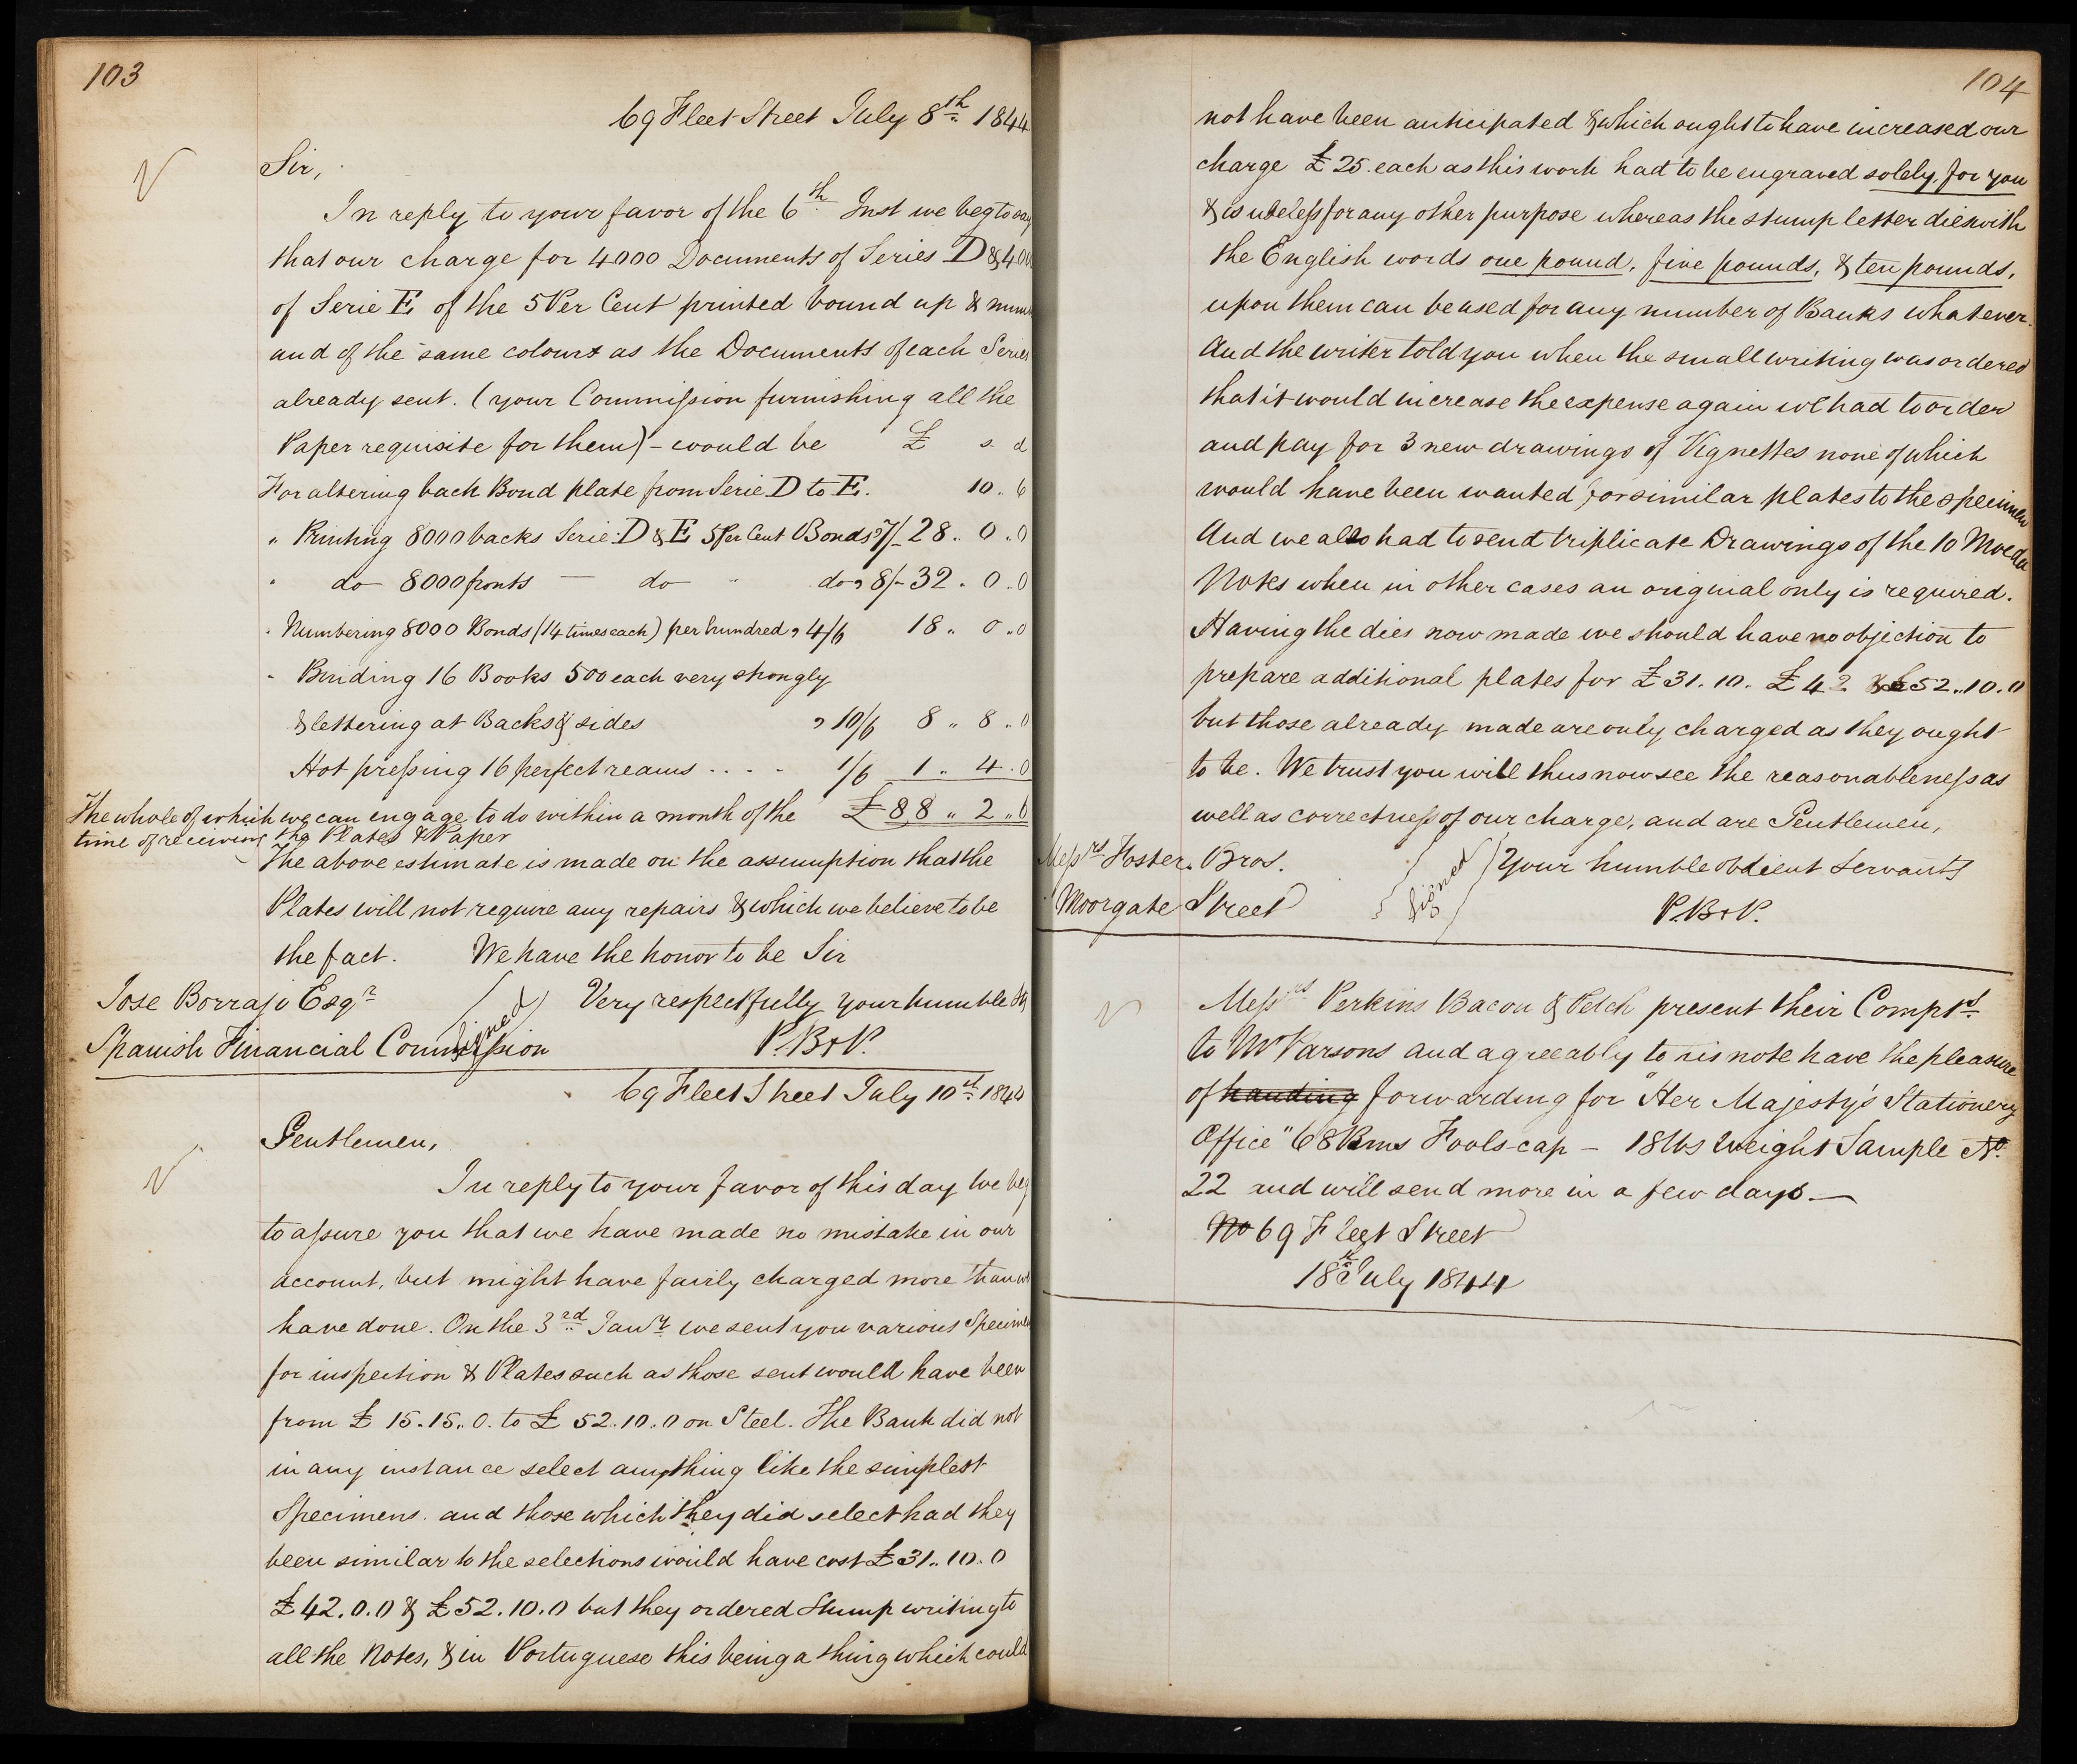 103
69 Fleet Street July 8th 1844
Sir,
In reply to your favor of the 6th Inst we beg to say
that our charge for 4000 Documents of Series D & 400
of Serie E of the 5 Per Cent printed bound up & num
and of the same colours as the Documents of each Series
already sent. (your Commission furnishing all the
Paper requisite for them) - would be £ s d
For altering back Bond plate from Serie D to E. 10 .. 6
" Printing 8000 backs Serie: D & E 5 Per Cent Bonds @ 7/- 28 .. 0 .. 0
" do 8000 fronts — do " do @ 8/- 32 . 0 .. 0
" Numbering 8000 Bonds (14 times each) per hundred @ 4/6 18 .. 0 .. 0
" Binding 16 Books 500 each very strongly
& lettering at Backs & sides @ 10/6 8 .. 8 .. 0
Hot pressing 16 perfect reams . . . . 1/6 1 .. 4 . 0
The whole of which we can engage to do within a month of the £ 88 .. 2 .. 6
time of receiving the Plates & Paper
The above estimate is made on the assumption that the
Plates will not require any repairs & which we believe to be
the fact. We have the honor to be Sir
Jose Borrajo Esqr (signed) Very respectfully your humble
Spanish Financial Commission P.B & P.
69 Fleet Street July 10th 1844
Gentlemen,
In reply to your favor of this day we beg
to assure you that we have made no mistake in our
account, but might have fairly charged more than we
have done. On the 3rd Jany we sent you various Specimen
for inspection & Plates such as those sent would have been
from £ 15. 15.. 0. to £ 52. 10. 0 on Steel. The Bank did not
in any instance select anything like the simplest
Specimens. and those which they did select had they
been similar to the selections would have cost £31.. 10.. 0
£42. 0. 0 & £52. 10. 0 but they ordered Stump writing to
all the Notes, & in Portuguese this being a thing which could
104
not have been anticipated & which ought to have increased our
charge £ 25. each as this work had to be engraved solely, for you
& is useless for any other purpose whereas the stump letter dies with
the English words one pound, five pounds, & ten pounds,
upon them can be used for any number of Banks whatever.
And the writer told you when the small writing was ordered
that it would increase the expense again we had to order
and pay for 3 new drawings of Vignettes none of which
would have been wanted for similar plates to the specimen
And we also had to send triplicate Drawings of the 10 Moeda
Notes when in other cases an original only is required.
Having the dies now made we should have no objection to
prepare additional plates for £31. 10. £42 & £52.. 10. 0
but those already made are only charged as they ought
to be. We trust you will thus now see the reasonableness as
well as correctness of our charge, and are Gentlemen,
Messrs Foster. Bros. (signed) Your humble obdient Servants
Moorgate Street P.B & P.
Messrs Perkins Bacon & Petch present their Compts
to Mr Parsons and agreeably to his note have the pleasure
of handing forwarding for "Her Majesty's Stationery
Office" 68 Rms Fools-cap - 18 lbs weight Sample No.
22 and will send more in a few days. —
No 69 Fleet Street
18th July 1844